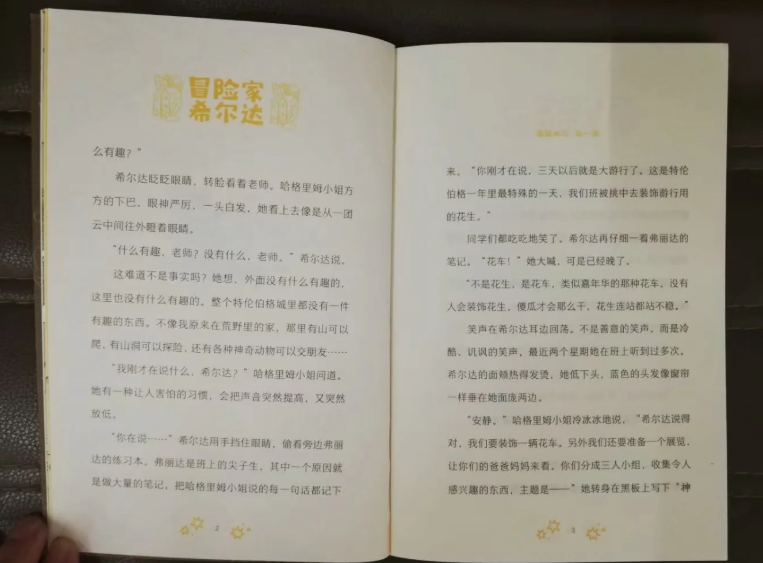 冒险家
希尔达
么有趣？”
希尔达眨眨眼睛，转脸看看老师。哈格里姆小姐方
方的下巴，眼神严厉，一头白发，她看上去像是从一团
云中间往外瞪着眼睛。
“什么有趣，老师？没有什么，老师。”希尔达说。
这难道不是事实吗？她想，外面没有什么有趣的，
这里也没有什么有趣的。整个特伦伯格城里都没有一件
有趣的东西。不像我原来在荒野里的家，那里有山可以
爬，有山洞可以探险，还有各种神奇动物可以交朋友……
“我刚才在说什么，希尔达？”哈格里姆小姐问道。
她有一种让人害怕的习惯，会把声音突然提高，又突然
放低。
“你在说……”希尔达用手挡住眼睛，偷看旁边弗丽
达的练习本，弗丽达是班上的尖子生，其中一个原因就
是做大量的笔记，把哈格里姆小姐说的每一句话都记下
2
来。“你刚才在说，三天以后就是大游行了。这是特伦
伯格一年里最特殊的一天，我们班被挑中去装饰游行用
的花生。”
同学们都吃吃地笑了。希尔达再仔细一看弗丽达的
笔记。“花车！”她大喊，可是已经晚了。
“不是花生，是花车，类似嘉年华的那种花车，没有
人会装饰花生，傻瓜才会那么干，花生连站都站不稳。”
笑声在希尔达耳边回荡。不是善意的笑声，而是冷
酷、讥讽的笑声，最近两个星期她在班上听到过多次。
希尔达的面颊热得发烫，她低下头，蓝色的头发像窗帘
一样垂在她面庞两边。
“安静。”哈格里姆小姐冷冰冰地说，“希尔达说得
对，我们要装饰一辆花车。另外我们还要准备一个展览，
让你们的爸爸妈妈来看。你们分成三人小组，收集令人
感兴趣的东西，主题是——”她转身在黑板上写下“神
3